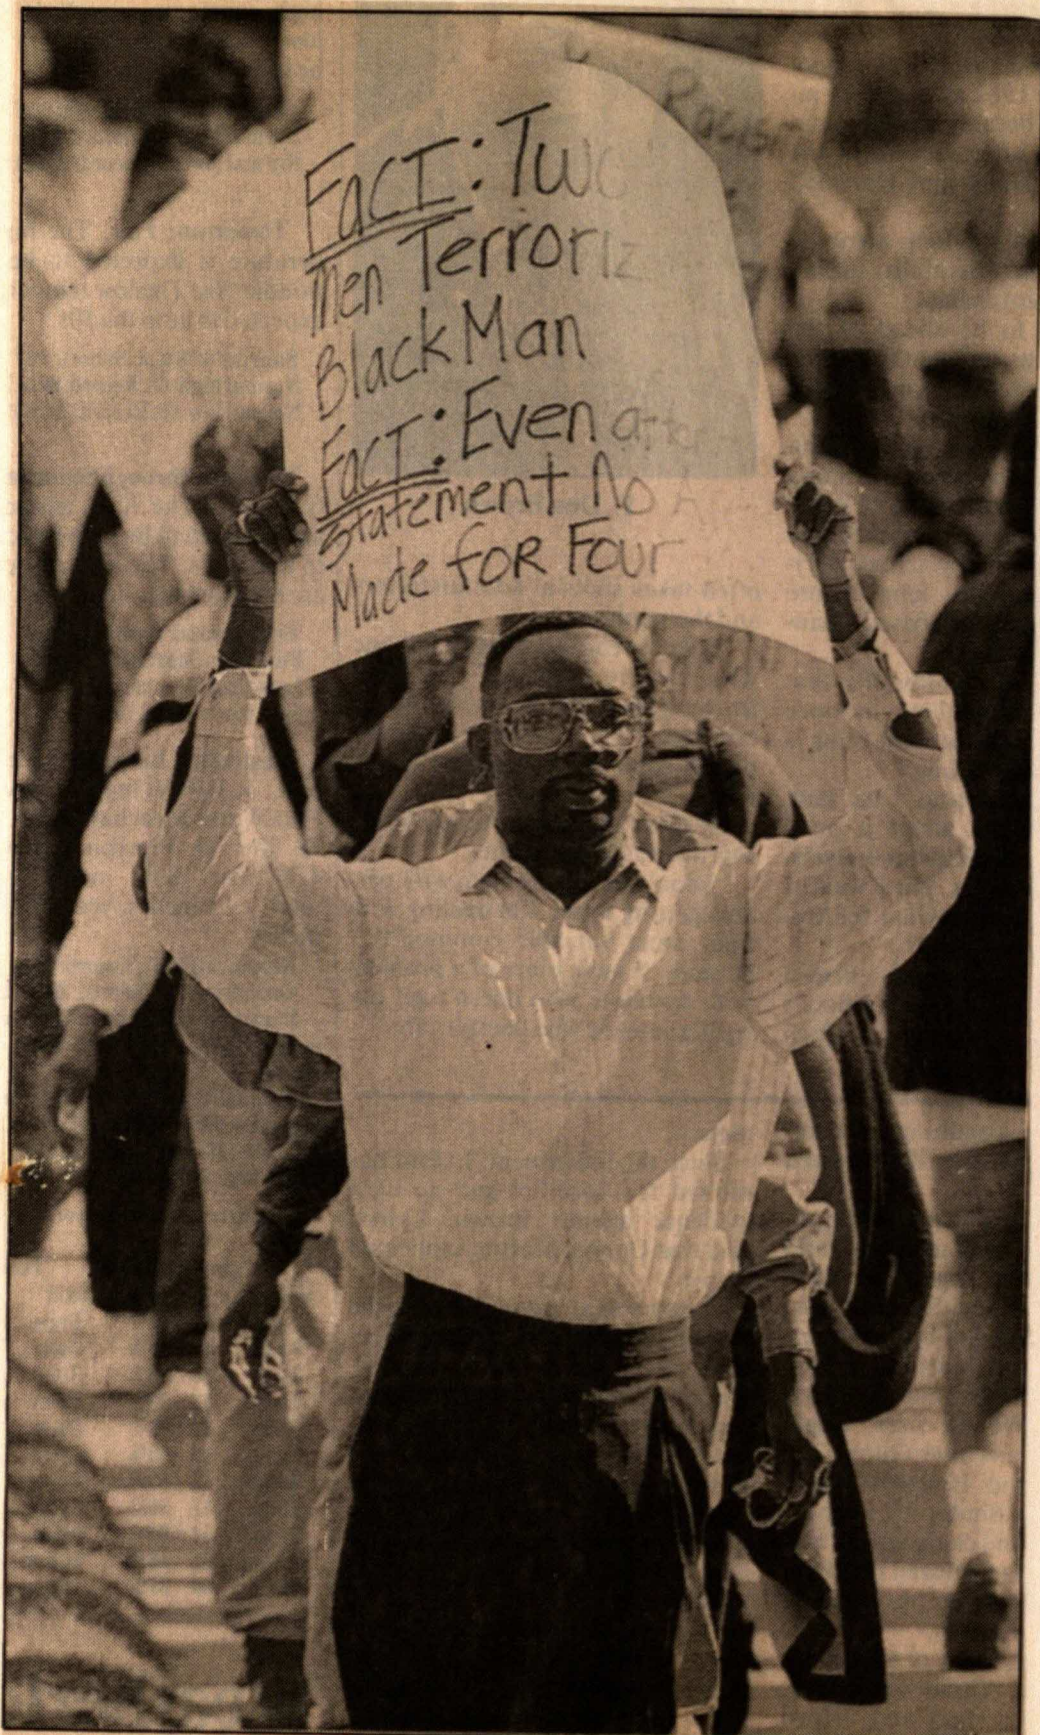 Racism
FacT: Two
Men Terroriz
Black Man
FacT: Even after
Statement No
Made for Four